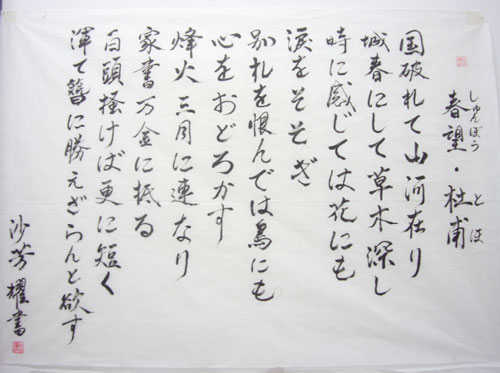 春望・杜甫
しゅんぼう とほ
国破れて山河在り
城春にして草木深し
時に感じては花にも
涙をそそぎ
別れを恨んでは鳥にも
心をおどろかす
烽火三月に連なり
家書万金に抵る
白頭掻けば更に短く
渾て簪に勝えざらんと欲す
沙芳耀書